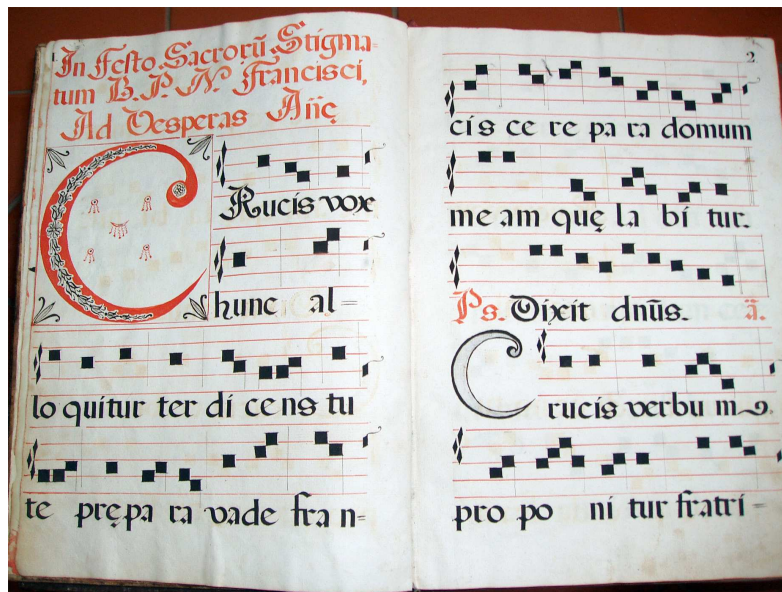 1
In Festo Sacrorũ Stigma=
tum B. P. N. Francisci,
Ad Vesperas Añę
CRucis vox
hunc al=
lo quitur ter di cens tu
te prępa ra vade fra n=
2
cis ce re pa ra domum
me am quę la bi tur.
Ps. Dixit dnũs. ã.
Crucis verbu m
pro po ni tur fratri=